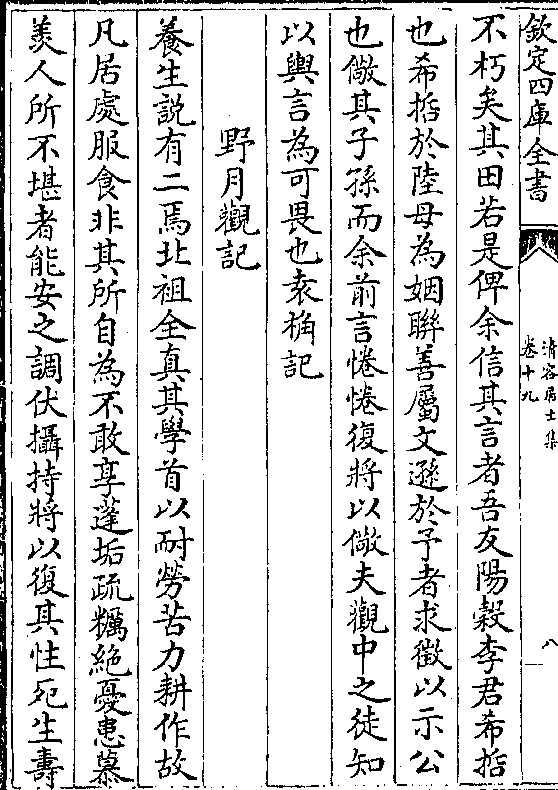 欽定四庫全書
清容居士集
卷十九
八
不朽矣其田若是俾余信其言者吾友陽穀李君希㧞
也希㧞於陸母為姻聨善屬文遜於予者求徵以示公
也儆其子孫而余前言惓惓復將以儆夫觀中之徒知
以輿言為可畏也袁桷記
野月觀記
養生説有二焉北祖全真其學首以耐勞苦力耕作故
凡居處服食非其所自為不敢享蓬垢疏糲絶憂患慕
羡人所不堪者能安之調伏攝持將以復其性死生壽